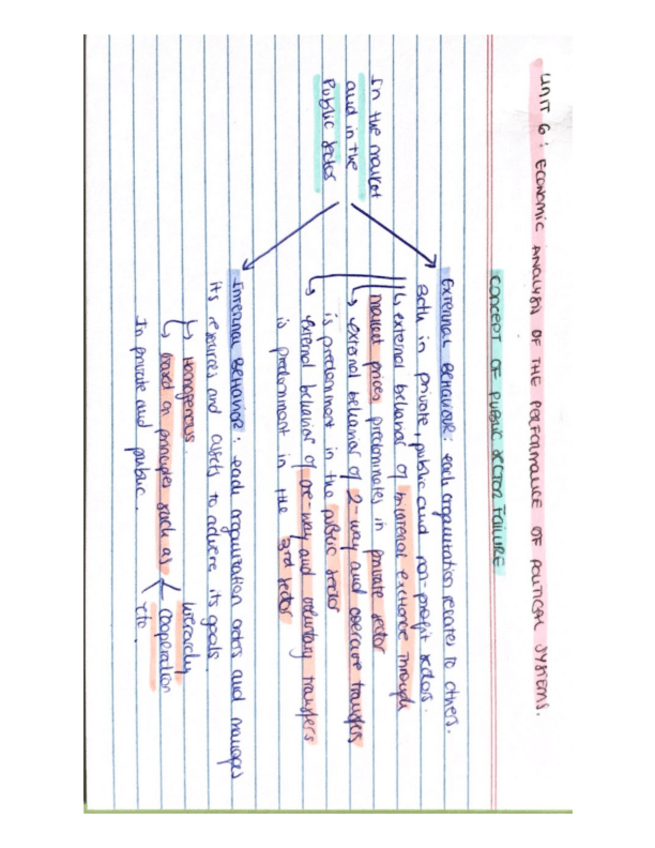 UNIT 6: ECONOMIC ANALYSIS OF THE PERFORMANCE OF POLITICAL SYSTEMS.
CONCEPT OF PUBLIC SECTOR FAILURE
In the market
and in the
Public sector
External Behaviour: each organization relates to others.
Both in private, public and non-profit sectors.
external behavior of bilateral exchange through
market prices predominates in private sector
external behavior of 2-way and coercive transfers
is predominant in the public sector
external behavior of one-way and voluntary transfers
is predominant in the 3rd sector
Internal Behavior: each organization orders and manages
its resources and assets to achieve its goals.
Homogenous.
based on principles such as
hierarchy
cooperation
etc.
In private and public.